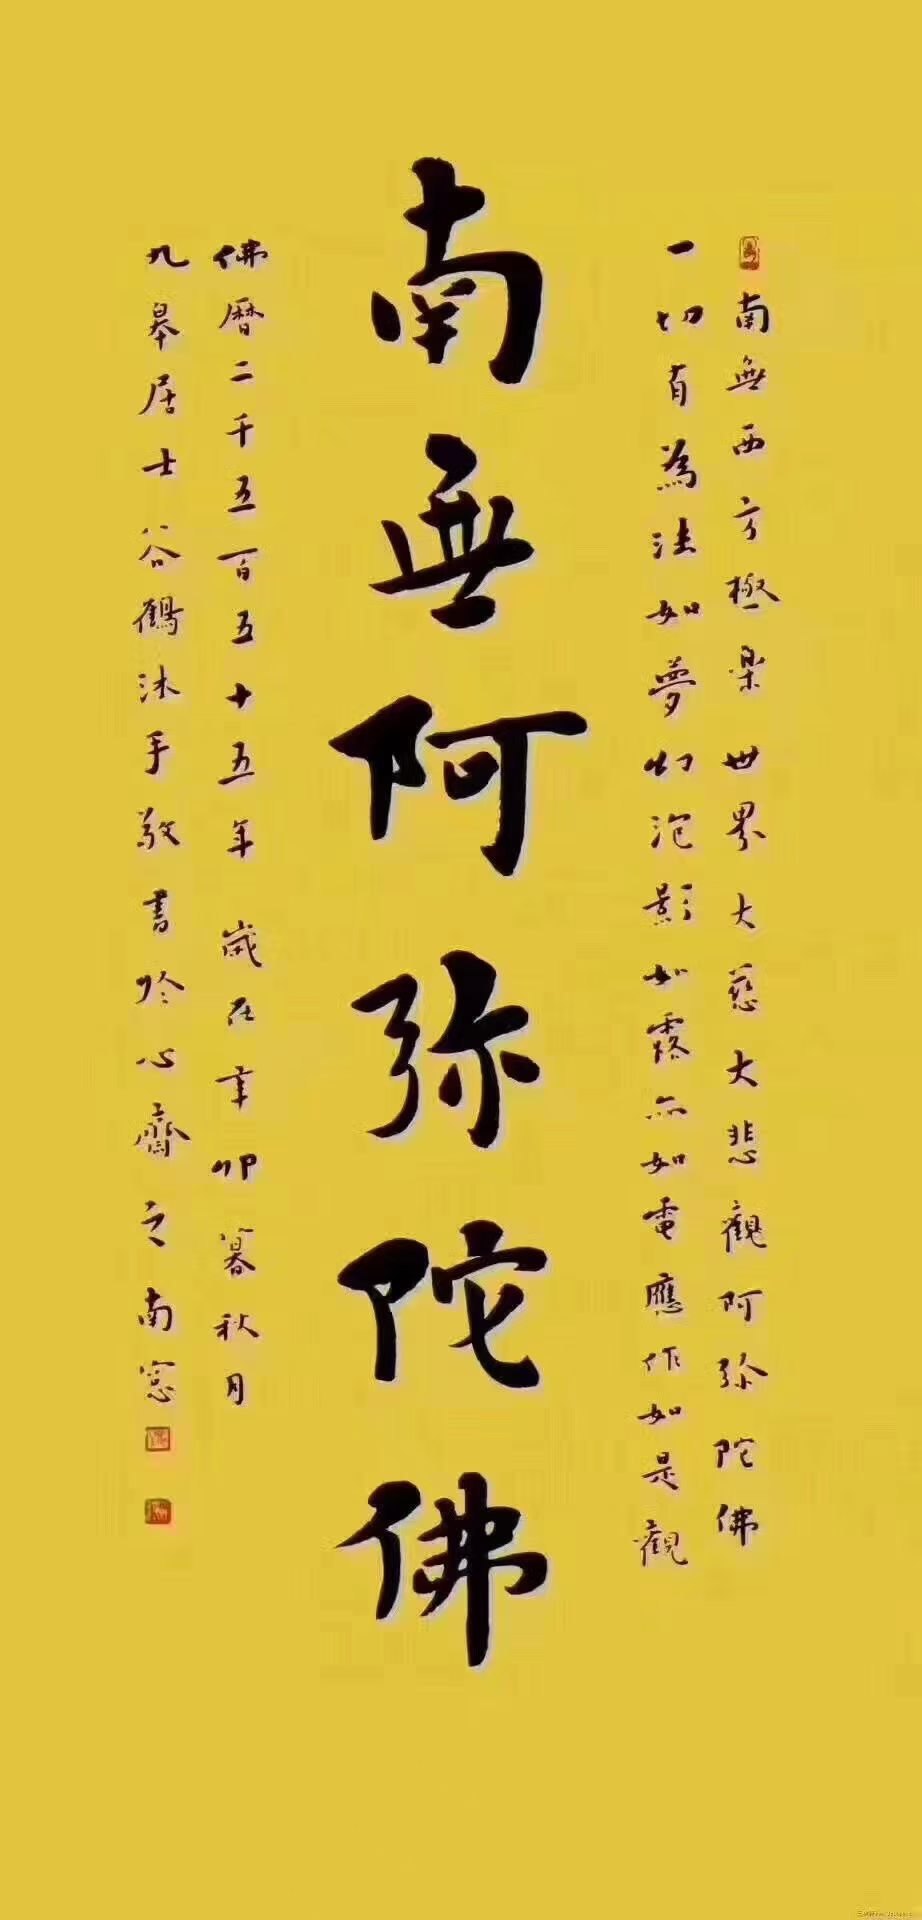 南無西方極楽世界大慈大悲觀阿弥陀佛
一切有為法如夢幻泡影如露亦如電應作如是觀
南無阿弥陀佛
佛曆二千五百五十五年 歲在辛卯暮秋月
九皋居士谷鶴沐手敬書於心齋之南窓